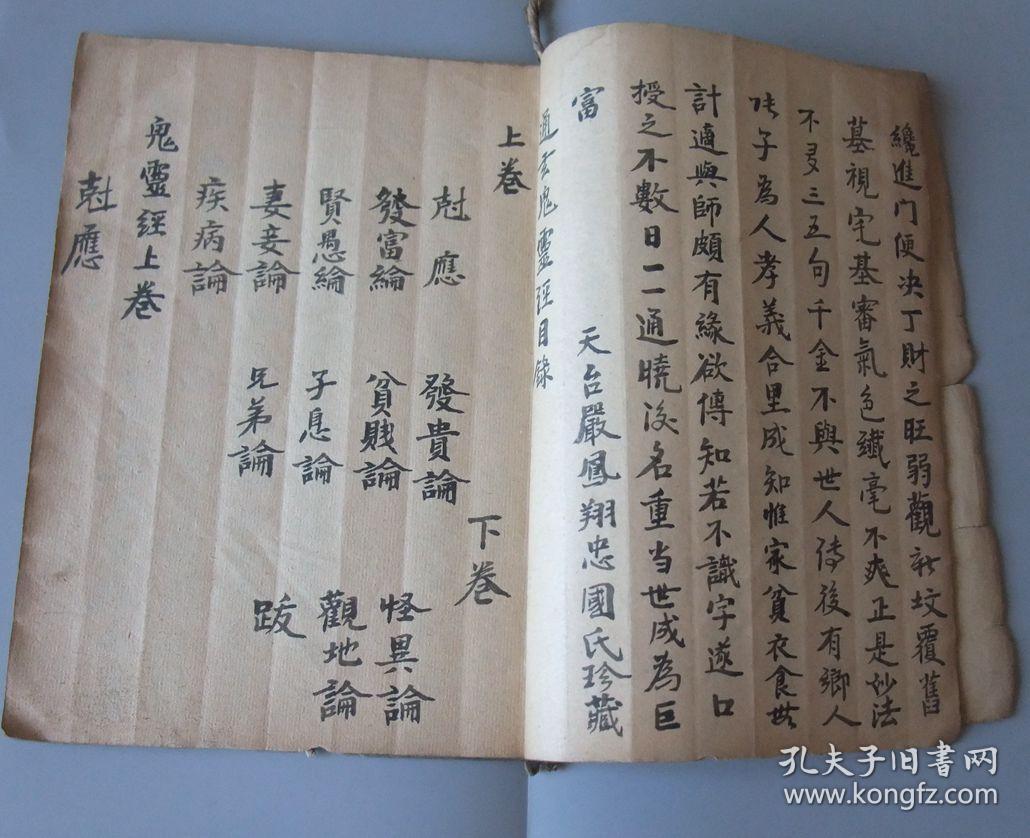 纔進门便决丁財之旺弱觀新坟覆舊
墓視宅基審氣色纖毫不爽正是妙法
不多三五句千金不與世人傳後有鄉人
張子為人孝義合里咸知惟家貧衣食無
計適與師頗有緣欲傳知若不識字遂口
授之不數日一一通曉後名重当世成為巨
富
天台嚴鳳翔忠國氏珍藏
通玄鬼靈經目錄
上卷
尅應 發貴論
發富論 貧賤論
賢愚論 子息論
妻妾論 兄弟論
疾病論
下卷
怪異論
觀地論
跋
鬼靈經上卷
尅應
孔夫子旧書网
www.kongfz.com